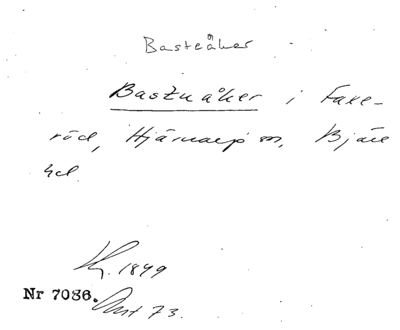 Basteåker
Bastuåker i Faxe-
röd, Hjärnarp sn, Bjäre
hd.
Kj. 1849
Nr 7086. Ant 73.